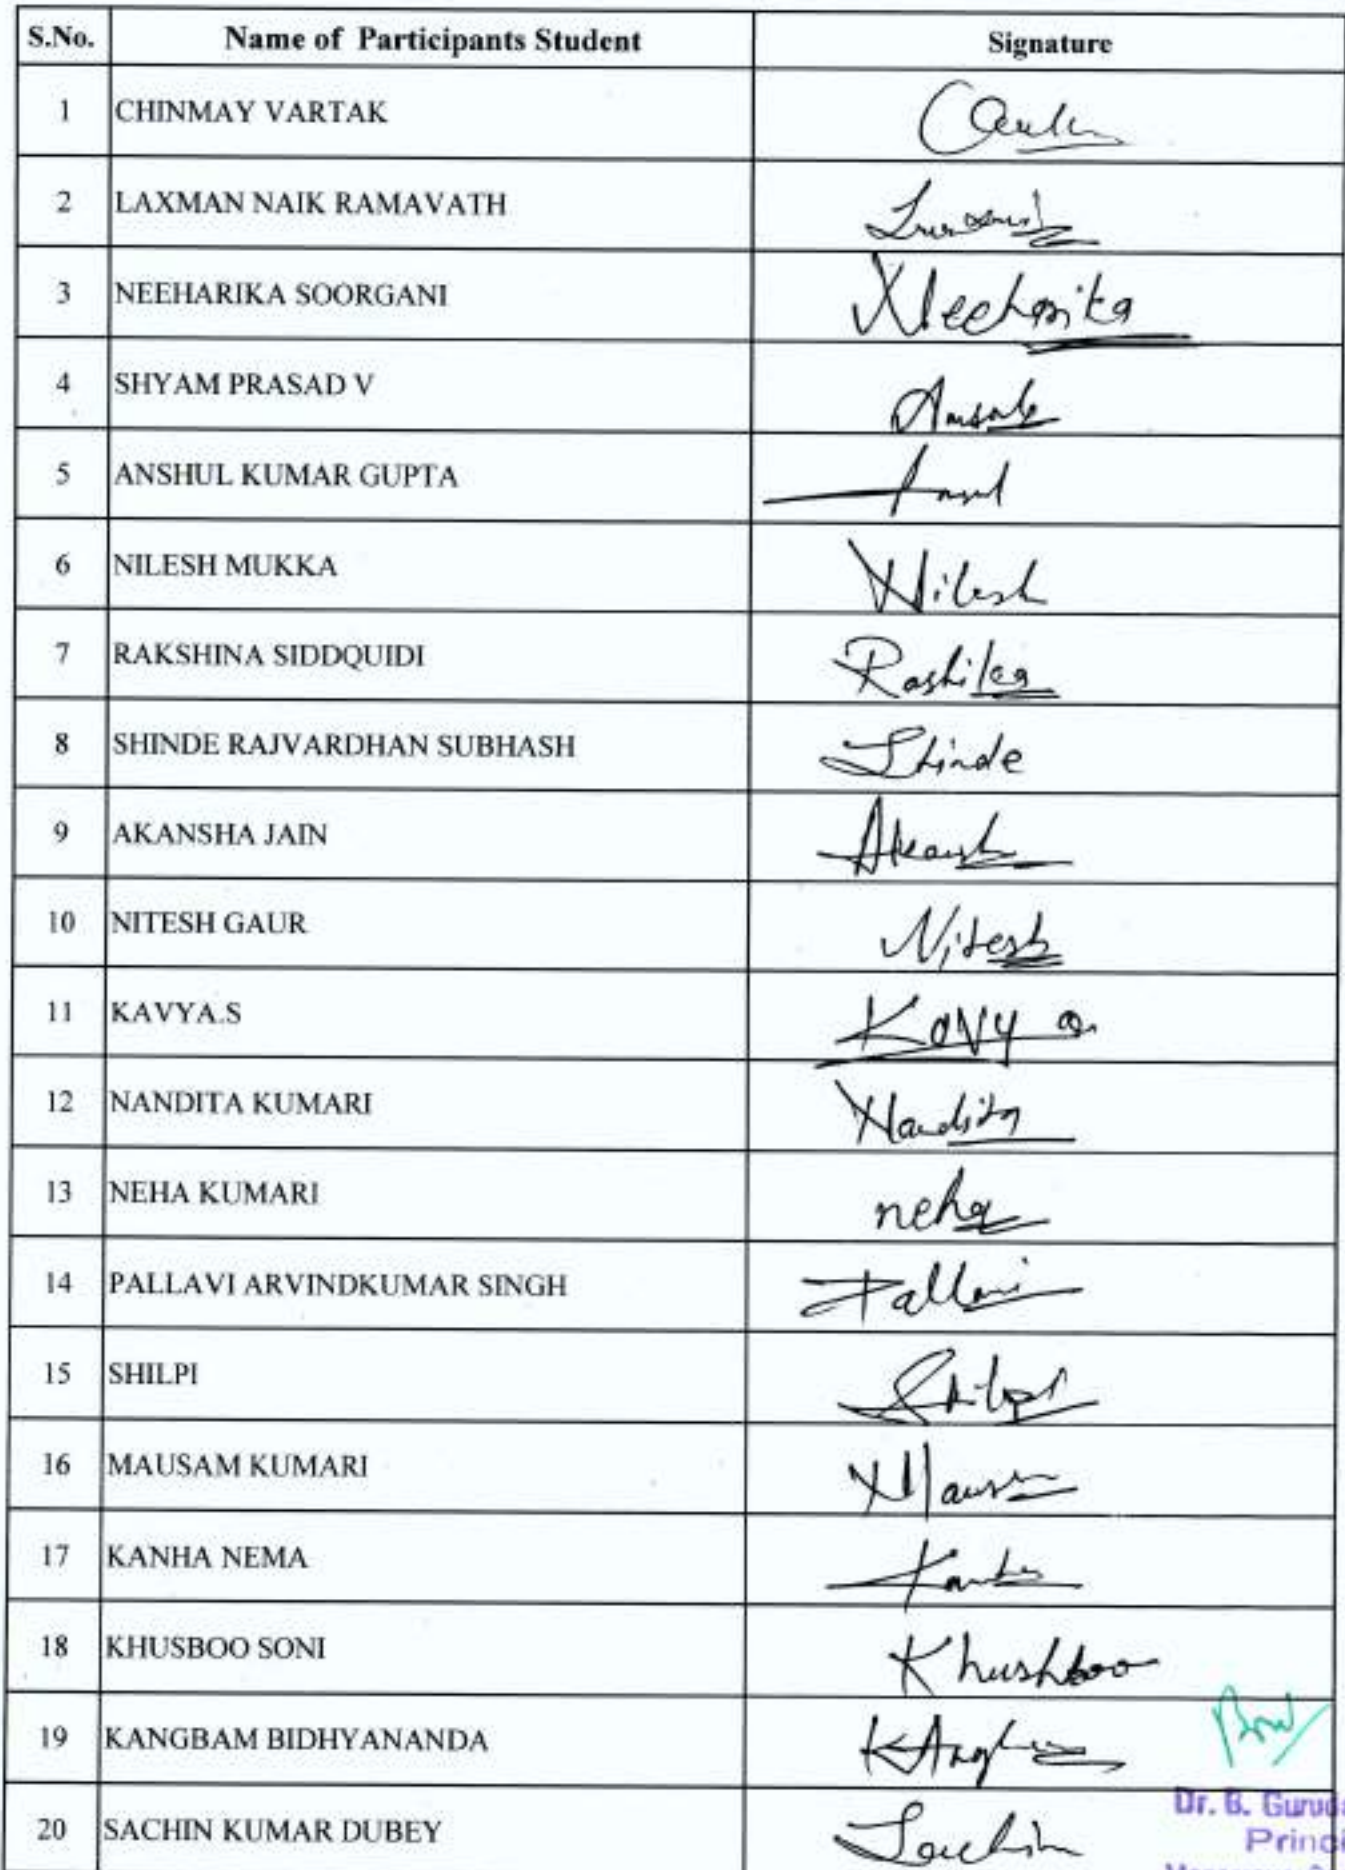 S.No. Name of Participants Student Signature
1 CHINMAY VARTAK
2 LAXMAN NAIK RAMAVATH
3 NEEHARIKA SOORGANI Neeharika
4 SHYAM PRASAD V
5 ANSHUL KUMAR GUPTA
6 NILESH MUKKA Nilesh
7 RAKSHINA SIDDQUIDI
8 SHINDE RAJVARDHAN SUBHASH Shinde
9 AKANSHA JAIN
10 NITESH GAUR Nitesh
11 KAVYA.S Kavya
12 NANDITA KUMARI Nandita
13 NEHA KUMARI neha
14 PALLAVI ARVINDKUMAR SINGH Pallavi
15 SHILPI Shilpi
16 MAUSAM KUMARI
17 KANHA NEMA
18 KHUSBOO SONI Khushboo
19 KANGBAM BIDHYANANDA
Dr. B. Guru
20 SACHIN KUMAR DUBEY Sachin
Princi